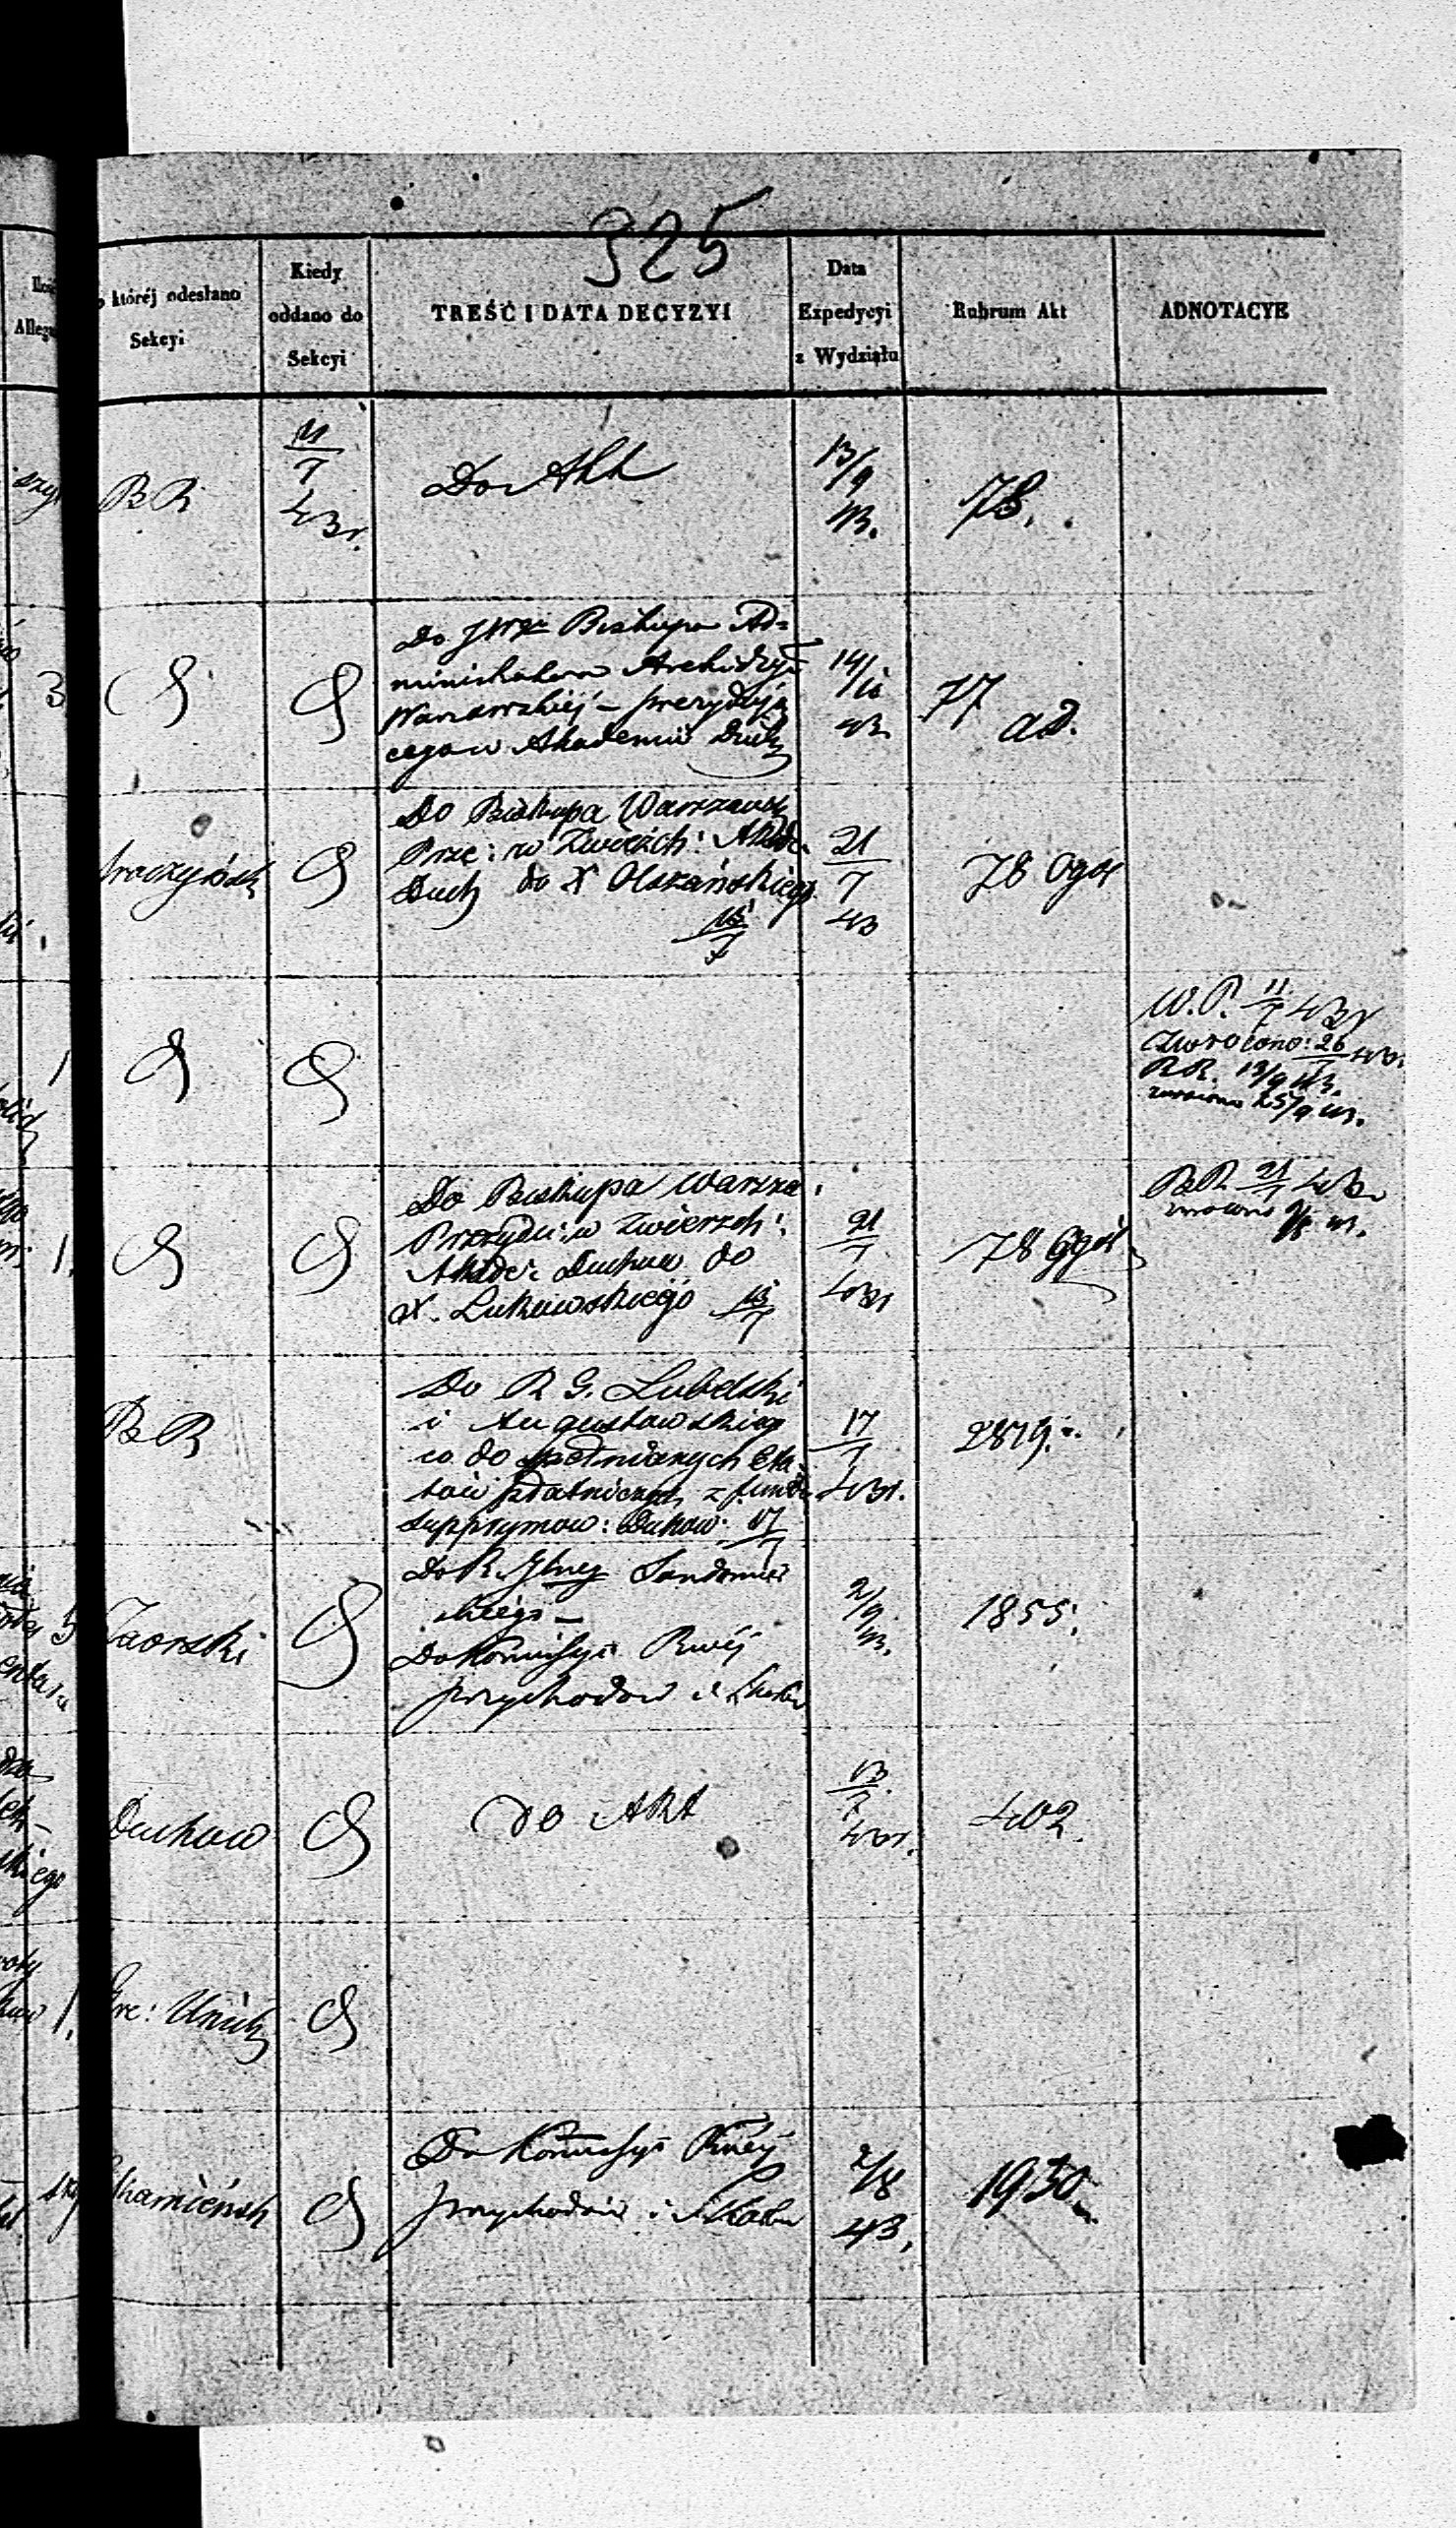 325
któréj odesłano
Sekcyi
Kiedy
oddano do
Sekcyi
TREŚĆ I DATA DECYZYI
Data
Expedycyi
z Wydziału
Rubrum Akt
ADNOTACYE
BR
11/7
43 r.
Do Akt
13/9
43.
78.
3
Do JWgo Biskupa Ad-
ministratora Archidyje
Warszawskiéj – prezydują
cego w Akademii Duch
14/10
43
77
ad.
Do Biskupa Warszawsk
Preze: w Zwierzch: Akade
Duch do X Olszańskiego
15/7
21/7
43
78 Ogól
1
W. P. 11/7 43 r
zwrócono: 26/7 43.
R R. 13/9 43.
zwrócono 25/9 43.
1.
Do Biskupa Warsza:
Prezydu: w Zwierzch:
Akade: Duchow do
X. Lukiewskiego 15/7
21/7
43 r
78 Ogól
BR 21/7 43
43.
BR
Do R G. Lubelski
i Augustowskiego
co do
z fundu
supprymow: Duchow. 17/7
17/7
43 r.
2879.
5
Zaorski
Do R. Sandomier
skiego –
Do Komisyi Rwéj
przychodów i Skarbu
2/9
43.
1855.
Duchow
do Akt
13/7
43 r.
402.
1.
Gre: Unick
17
Kamieńsk
Do Komisyi Rwéj
przychodów i Skarbu
2/8
43.
1930.